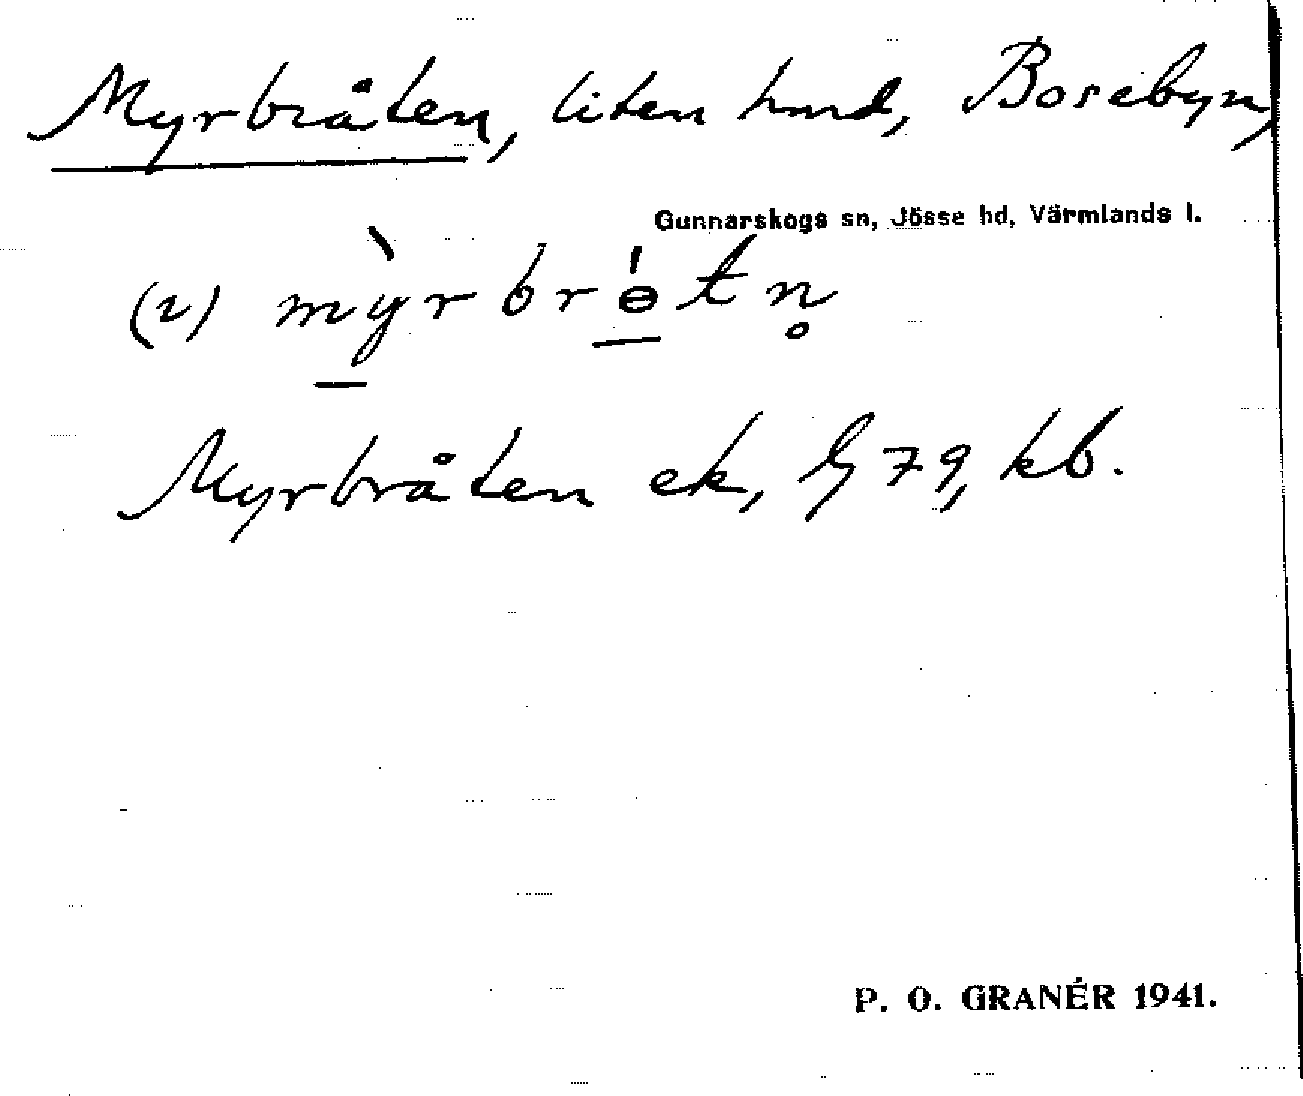 Myrbråten, liten hmd, Bosebyn,
Gunnarskogs sn, Jösse hd, Värmlands l.
(2) mỳrbrɵ́tn̥
Myrbråten ek, G 79, kb.
P. O. GRANÉR 1941.